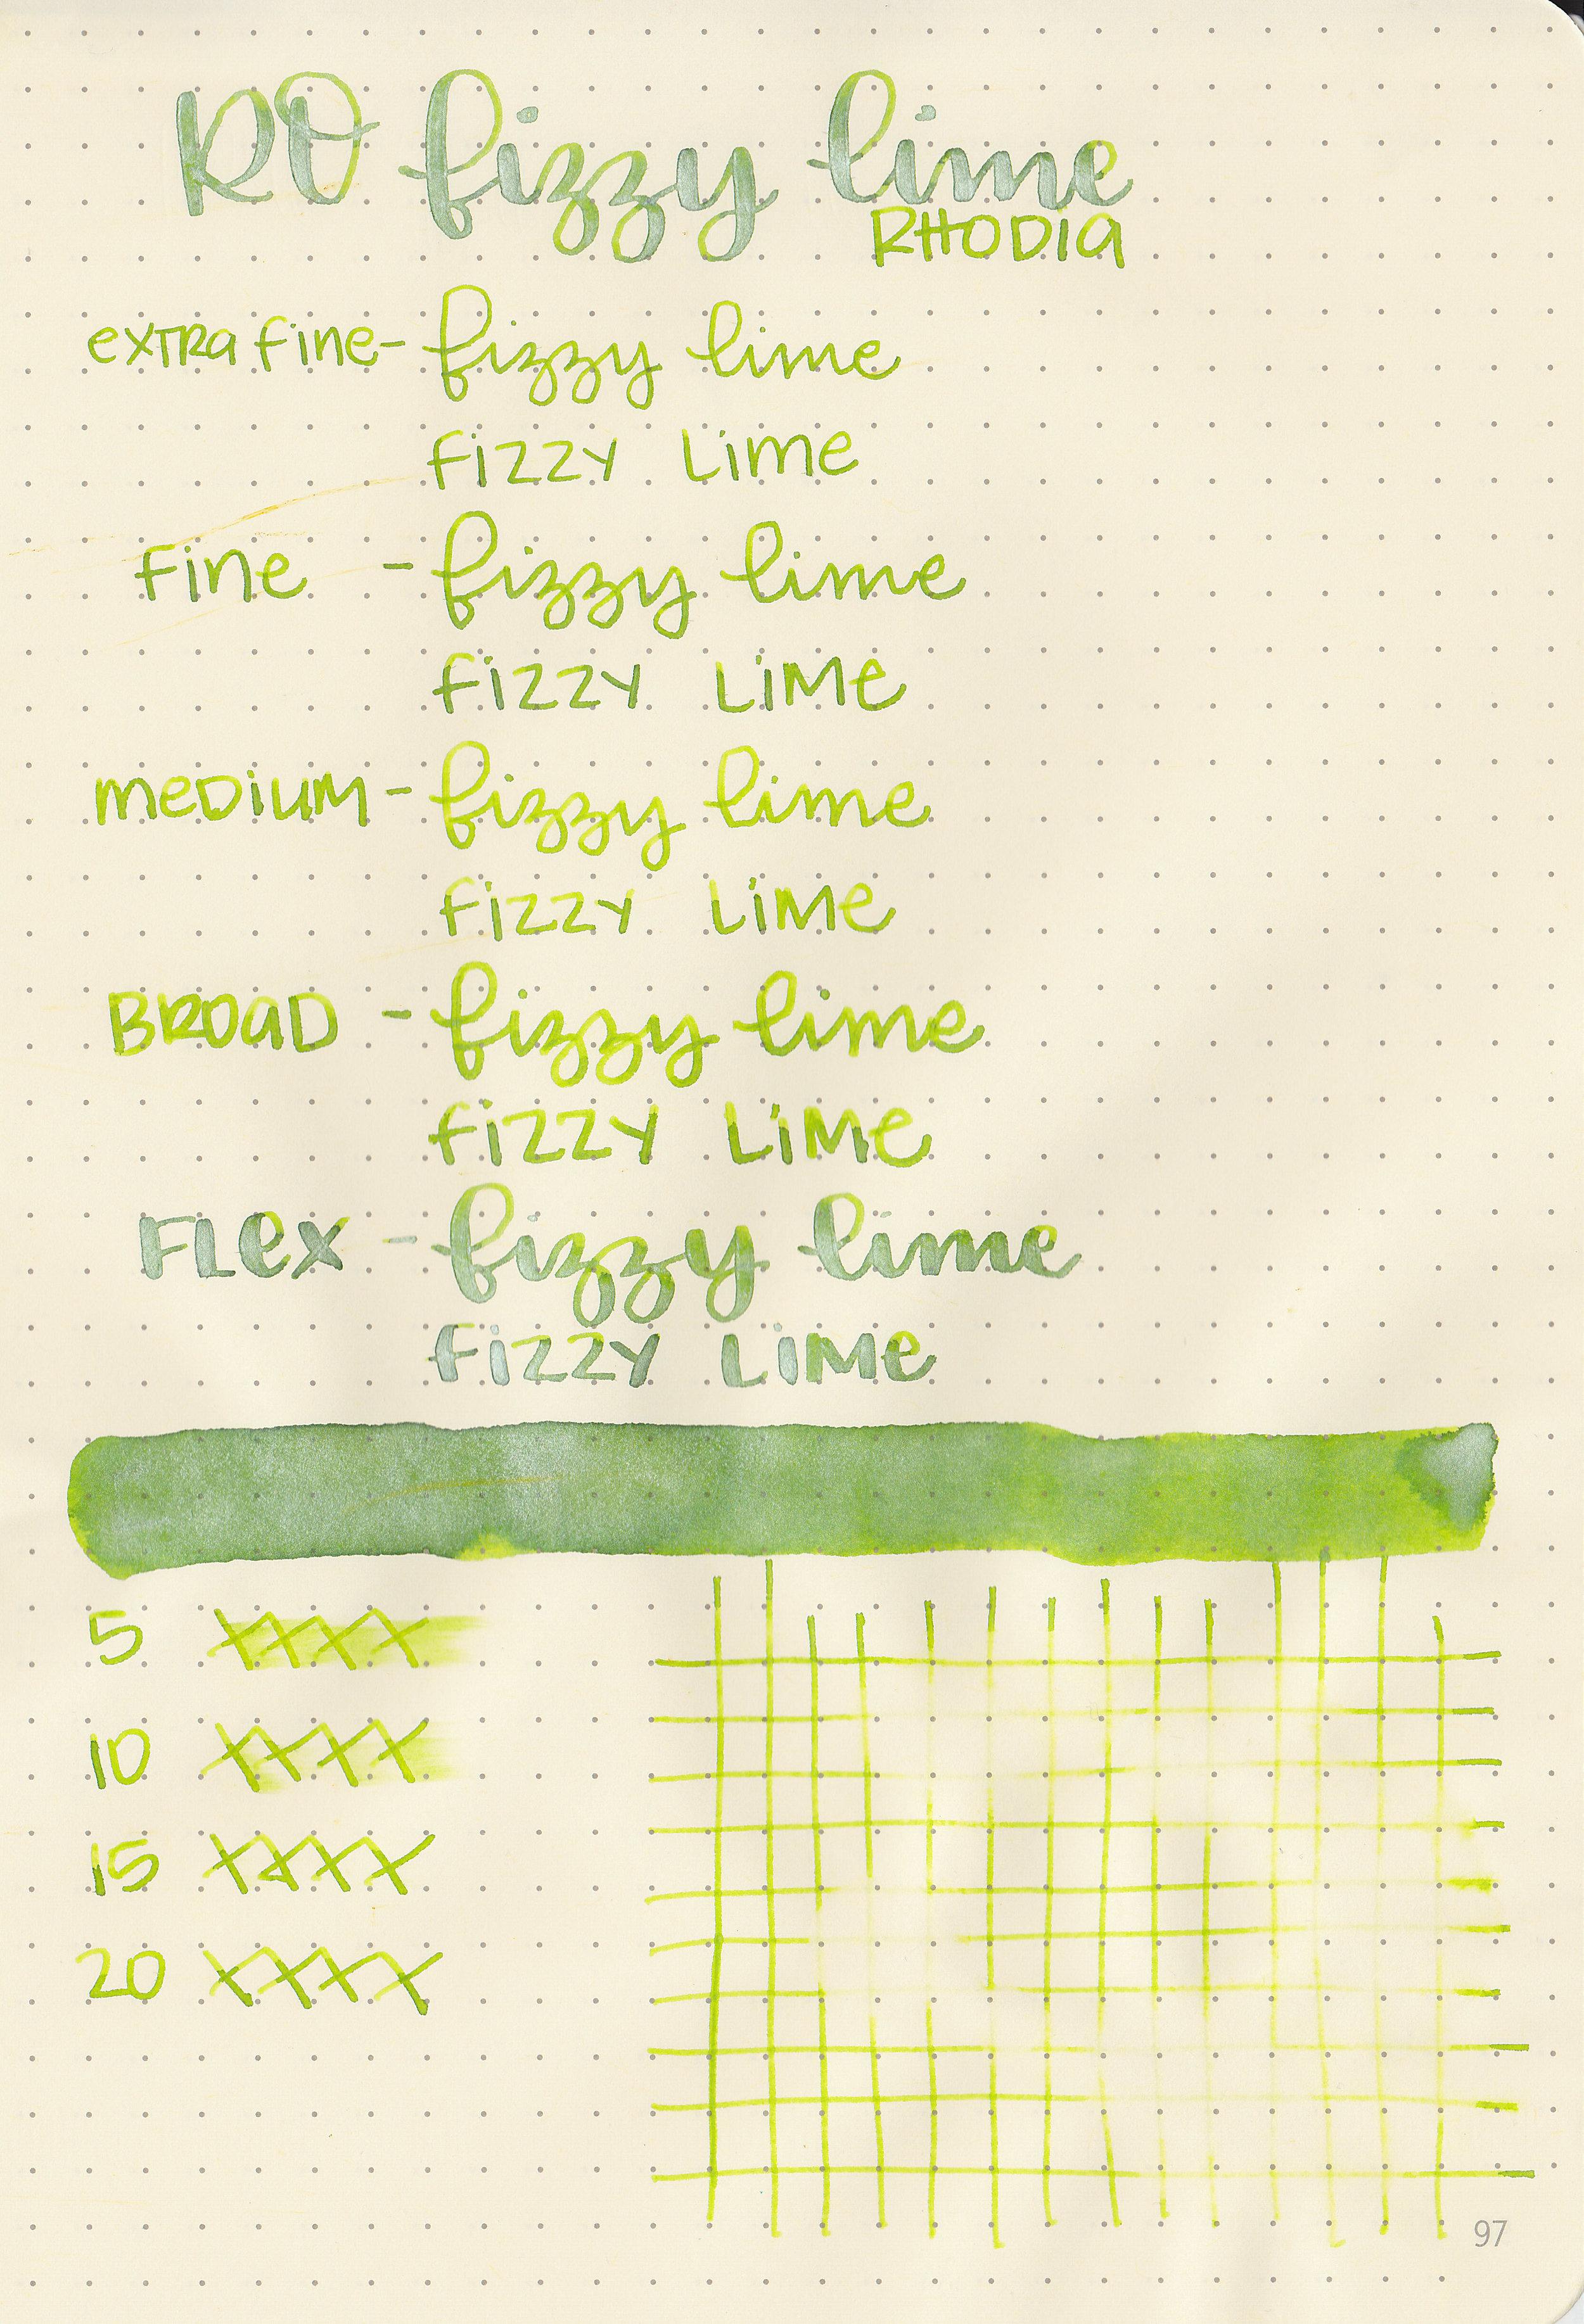 RO fizzy lime
RHODIA
extra fine- fizzy lime
fizzy lime
fine - fizzy lime
fizzy lime
medium - fizzy lime
fizzy lime
Broad - fizzy lime
fizzy lime
Flex - fizzy lime
fizzy lime
5 xxxx
10 xxxx
15 xxxx
20 xxxx
97